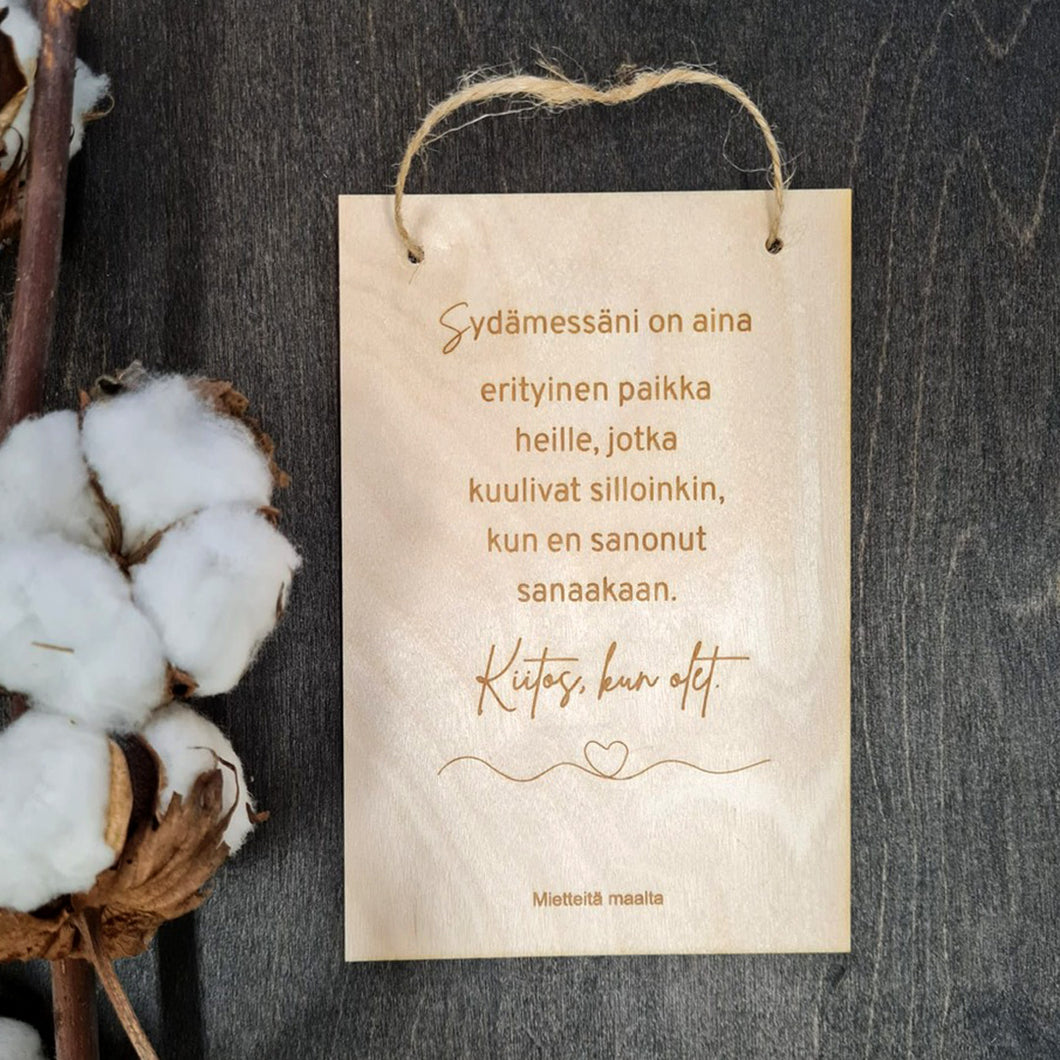 Sydämessäni on aina
erityinen paikka
heille, jotka
kuulivat silloinkin,
kun en sanonut
sanaakaan.
Kiitos, kun olet.
Mietteitä maalta